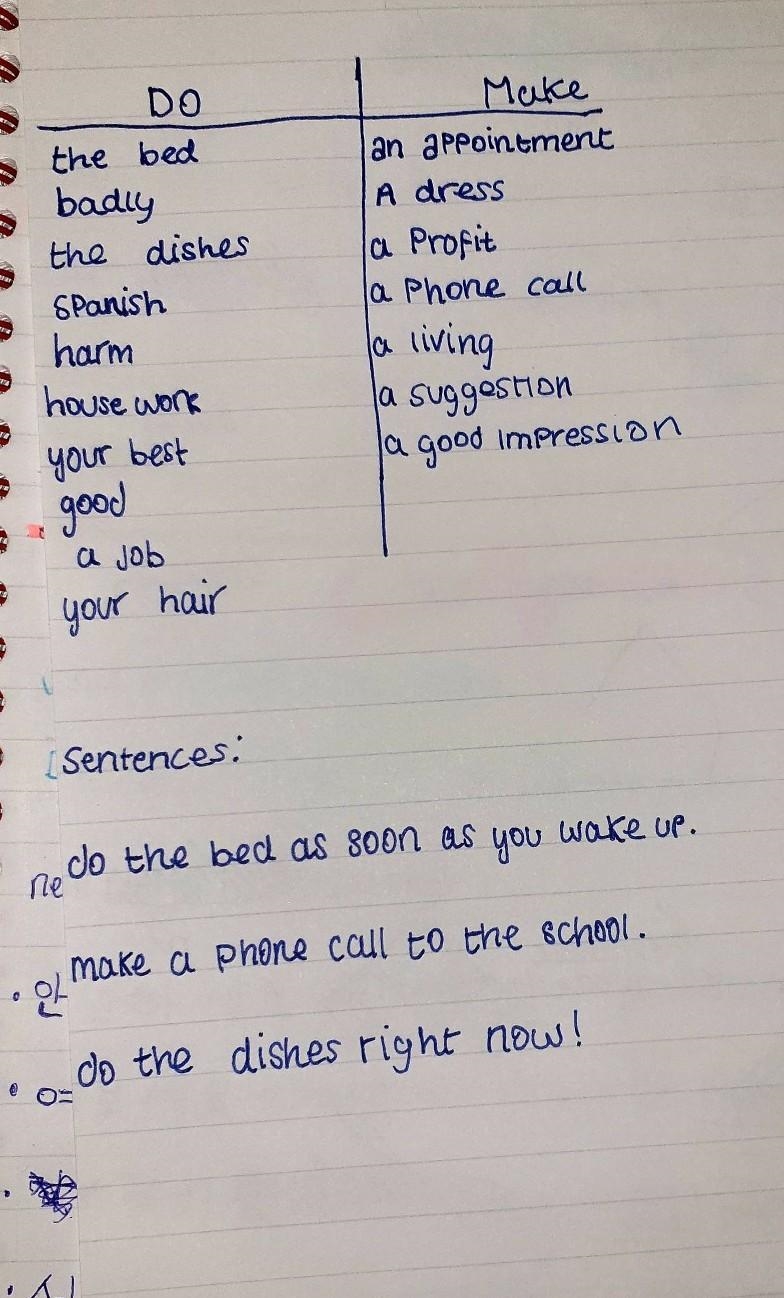 DO Make
the bed an appointment
badly A dress
the dishes a Profit
spanish a Phone call
harm a living
house work a suggestion
your best a good impression
good
a Job
your hair
Sentences:
do the bed as soon as you wake up.
ne
make a phone call to the school.
안
do the dishes right now!